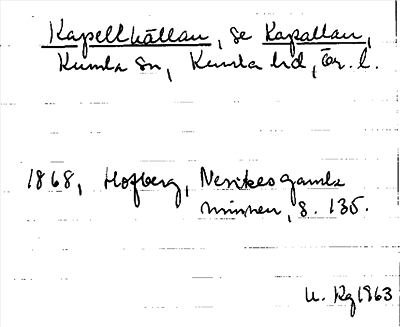 Kapellkällan, se Kapällan,
Kumla sn, Kumla hd, Ör. l.
1868, Hofberg, Nerikes gamla
minnen, s. 135.
U. Rg 1963